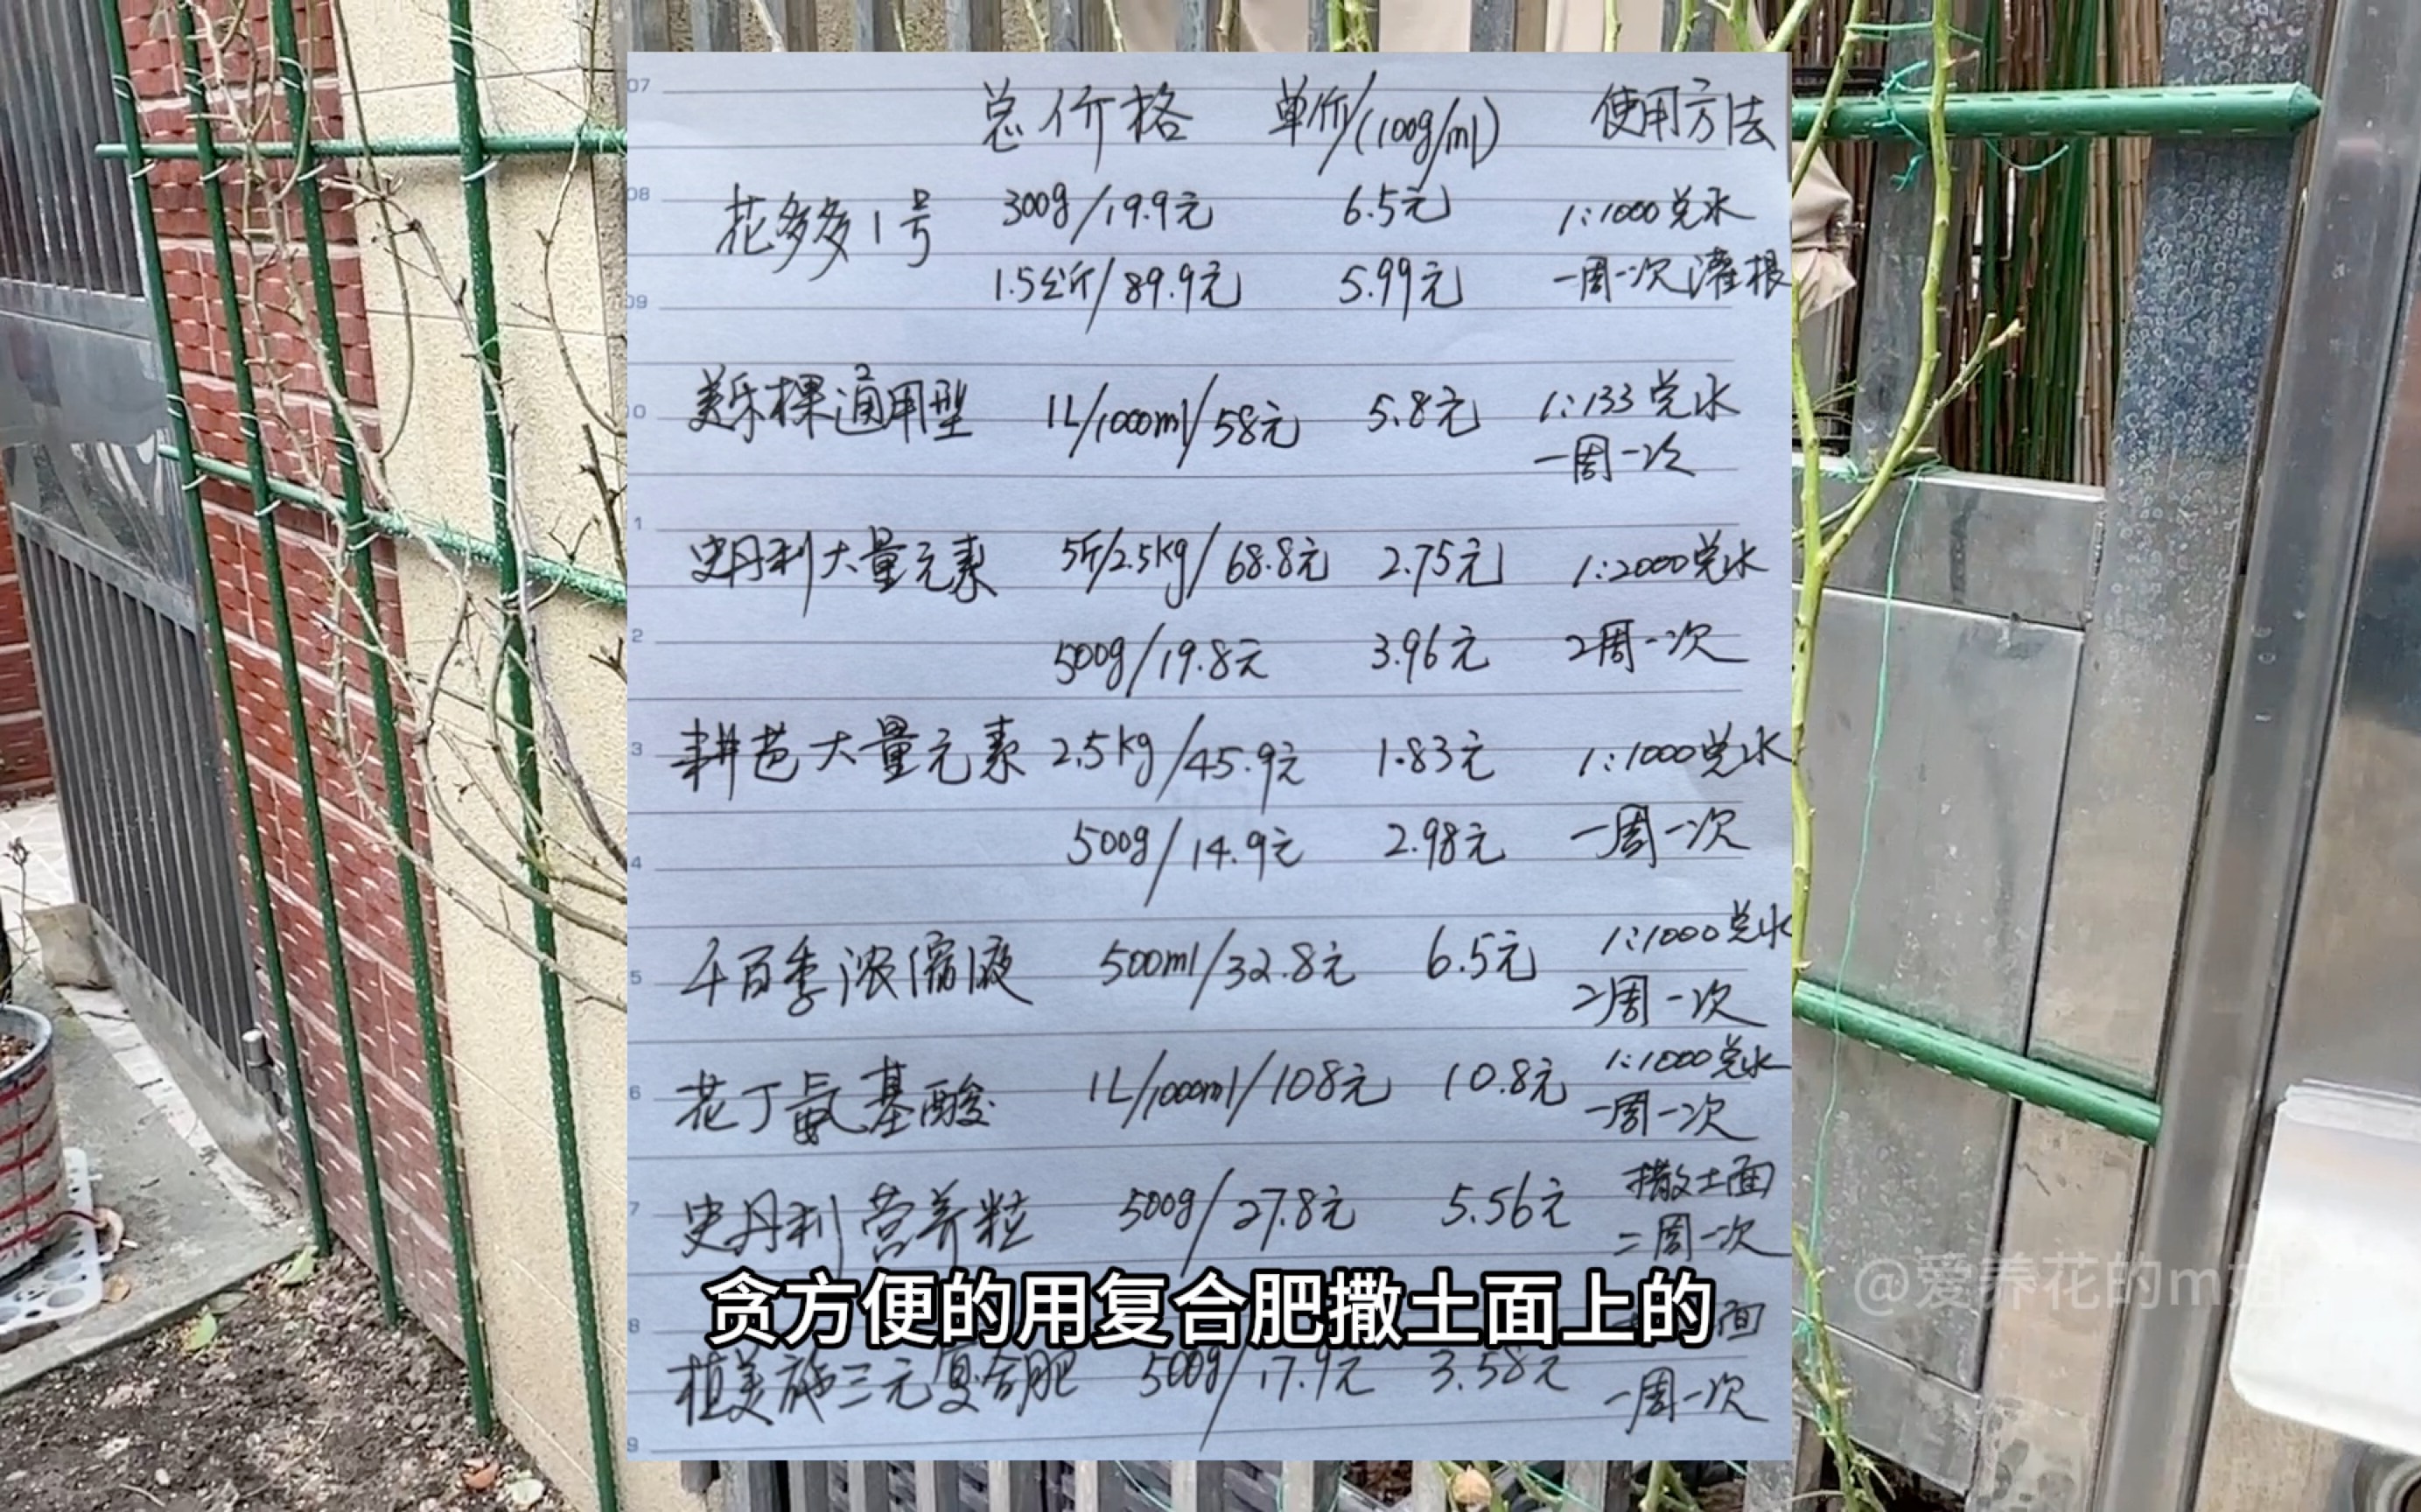 07
总价格 单价/(100g/ml) 使用方法
08
花多多1号 300g/19.9元 6.5元 1:1000兑水
1.5公斤/89.9元 5.99元 一周一次灌根
09
美乐棵通用型 1L/1000ml/58元 5.8元 1:133兑水
0
一周一次
1
史丹利大量元素 5斤/2.5kg/68.8元 2.75元 1:2000兑水
2
500g/19.8元 3.96元 2周一次
3
耕芭大量元素 2.5kg/45.9元 1.83元 1:1000兑水
500g/14.9元 2.98元 一周一次
4
千百季浓缩液 500ml/32.8元 6.5元 1:1000兑水
5
2周一次
6
花丁氨基酸 1L/1000ml/108元 10.8元 1:1000兑水
一周一次
7
史丹利营养粒 500g/27.8元 5.56元 撒土面
二周一次
@爱养花的m姐
贪方便的用复合肥撒土面上的
8
面
植美施三元复合肥 500g/17.9元 3.58元
一周一次
9